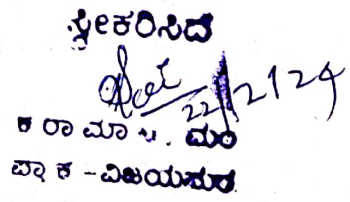 ಸ್ವೀಕರಿಸಿದೆ
22/2/24
ಕ ರಾ ಮಾ ಮಂ
ಪ್ರಾ ಕ - ವಿಜಯಪುರ